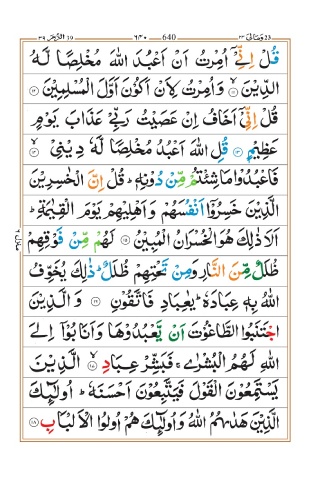 ومالی ٢٣ ٦٤٠ 640 الزمر ٣٩
قُلْ اِنِّیْۤ اُمِرْتُ اَنْ اَعْبُدَ اللّٰهَ مُخْلِصًا لَّهُ
الدِّیْنَ ۙ﴿۱۱﴾ وَ اُمِرْتُ لِاَنْ اَكُوْنَ اَوَّلَ الْمُسْلِمِیْنَ ﴿۱۲﴾
قُلْ اِنِّیْۤ اَخَافُ اِنْ عَصَیْتُ رَبِّیْ عَذَابَ یَوْمٍ
عَظِیْمٍ ﴿۱۳﴾ قُلِ اللّٰهَ اَعْبُدُ مُخْلِصًا لَّهٗ دِیْنِیْ ۙ﴿۱۴﴾
فَاعْبُدُوْا مَا شِئْتُمْ مِّنْ دُوْنِهٖ ؕ قُلْ اِنَّ الْخٰسِرِیْنَ
الَّذِیْنَ خَسِرُوْۤا اَنْفُسَهُمْ وَ اَهْلِیْهِمْ یَوْمَ الْقِیٰمَةِ ؕ
اَلَا ذٰلِكَ هُوَ الْخُسْرَانُ الْمُبِیْنُ ﴿۱۵﴾ لَهُمْ مِّنْ فَوْقِهِمْ
ظُلَلٌ مِّنَ النَّارِ وَ مِنْ تَحْتِهِمْ ظُلَلٌ ؕ ذٰلِكَ یُخَوِّفُ
اللّٰهُ بِهٖ عِبَادَهٗ ؕ یٰعِبَادِ فَاتَّقُوْنِ ﴿۱۶﴾ وَ الَّذِیْنَ
اجْتَنَبُوا الطَّاغُوْتَ اَنْ یَّعْبُدُوْهَا وَ اَنَابُوْۤا اِلَی
اللّٰهِ لَهُمُ الْبُشْرٰی ۚ فَبَشِّرْ عِبَادِ ۙ﴿۱۷﴾ الَّذِیْنَ
یَسْتَمِعُوْنَ الْقَوْلَ فَیَتَّبِعُوْنَ اَحْسَنَهٗ ؕ اُولٰٓىِٕكَ
الَّذِیْنَ هَدٰىهُمُ اللّٰهُ وَ اُولٰٓىِٕكَ هُمْ اُولُوا الْاَلْبَابِ ﴿۱۸﴾